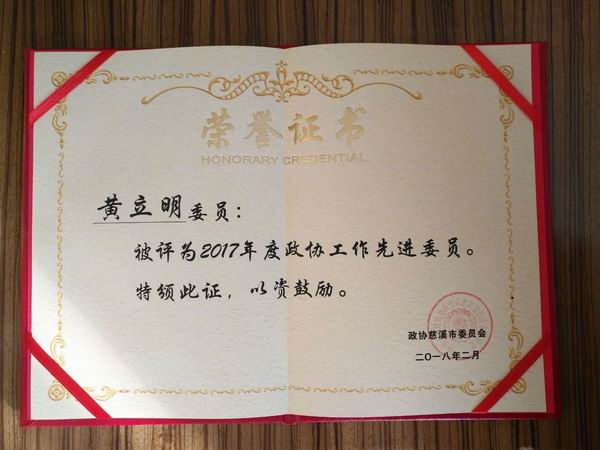 荣誉证书
HONORARY CREDENTIAL
黄立明委员：
被评为2017年度政协工作先进委员。
特颁此证，以资鼓励。
政协慈溪市委员会
二〇一八年二月